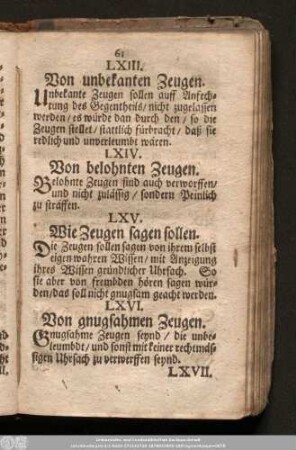 61
LXIII.
Von unbekanten Zeugen.
Unbekante Zeugen sollen auff Anfech-
tung des Gegentheils/nicht zugelassen
werden/es würde dan durch den/so die
Zeugen stellet/stattlich fürbracht/daß sie
redlich und unverleumbt wären.
LXIV.
Von belohnten Zeugen.
Belohnte Zeugen sind auch verworffen/
und nicht zulässig/sondern Peinlich
zu straffen.
LXV.
Wie Zeugen sagen sollen.
Die Zeugen sollen sagen von ihrem selbst
eigen wahren Wissen/mit Anzeigung
ihres Wissen gründlicher Uhrsach. So
sie aber von frembden hören sagen wür-
den/das soll nicht gnugsam geacht werden.
LXVI.
Von gnugsahmen Zeugen.
Gnugsahme Zeugen seynd/die unbe-
leumbdt/und sonst mit keiner rechtmäs-
sigen Uhrsach zu verwerffen seynd.
LXVII.